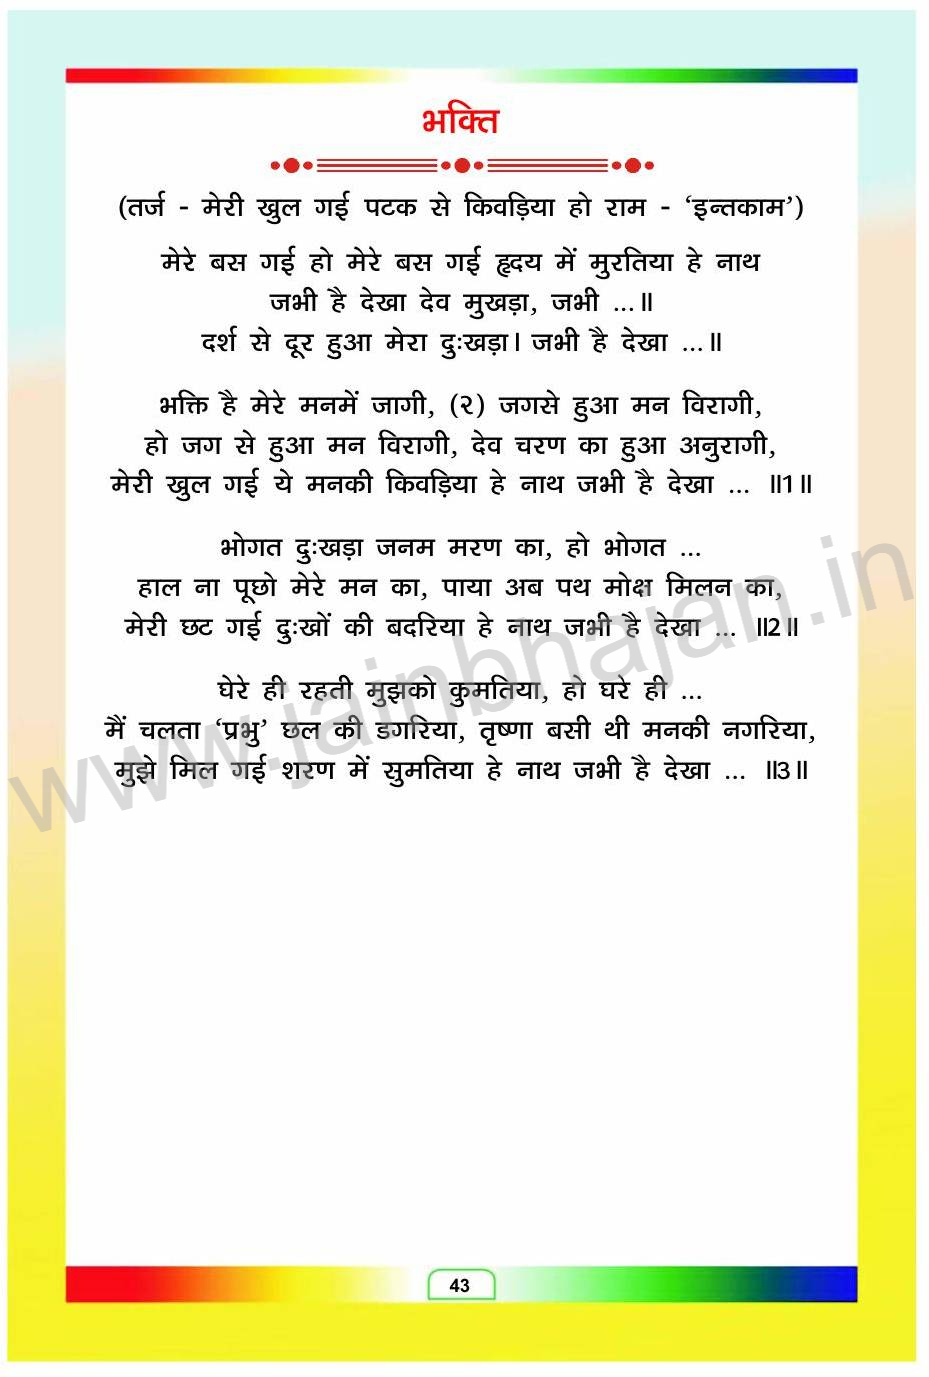 भक्ति
(तर्ज - मेरी खुल गई पटक से किवड़िया हो राम - ‘इन्तकाम’)
मेरे बस गई हो मेरे बस गई हृदय में मुरतिया हे नाथ
जभी है देखा देव मुखड़ा, जभी ...॥
दर्श से दूर हुआ मेरा दुःखड़ा। जभी है देखा ...॥
भक्ति है मेरे मनमें जागी, (२) जगसे हुआ मन विरागी,
हो जग से हुआ मन विरागी, देव चरण का हुआ अनुरागी,
मेरी खुल गई ये मनकी किवड़िया हे नाथ जभी है देखा ... ॥1॥
भोगत दुःखड़ा जनम मरण का, हो भोगत ...
हाल ना पूछो मेरे मन का, पाया अब पथ मोक्ष मिलन का,
मेरी छट गई दुःखों की बदरिया हे नाथ जभी है देखा ... ॥2॥
घेरे ही रहती मुझको कुमतिया, हो घरे ही ...
मैं चलता ‘प्रभु’ छल की डगरिया, तृष्णा बसी थी मनकी नगरिया,
मुझे मिल गई शरण में सुमतिया हे नाथ जभी है देखा ... ॥3॥
www.jainbhajan.in
43